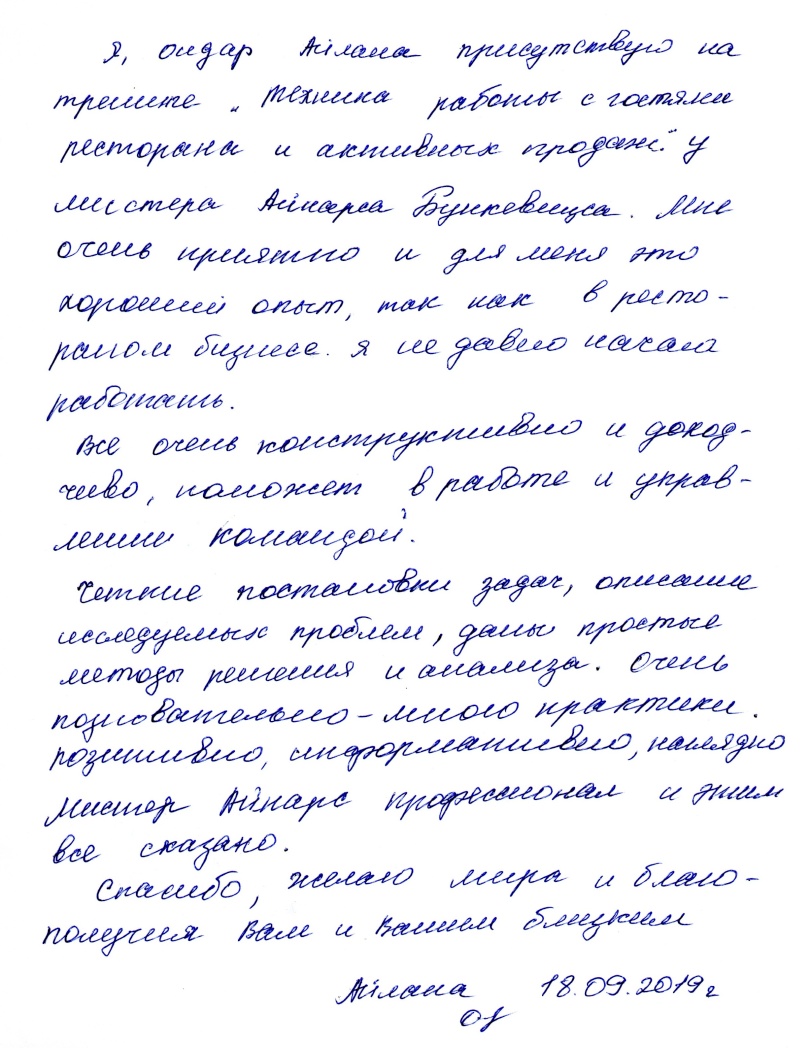 Я, Ондар Айлана присутствую на
тренинге „Техника работы с гостями
ресторана и активных продаж." у
мистера Айнарса Бункевицса. Мне
очень приятно и для меня это
хороший опыт, так как в ресто-
раном бизнесе. я не давно начала
работать.
Все очень конструктивно и доход-
чиво, поможет в работе и управ-
лении командой.
Четкие постановки задач, описание
исследуемых проблем, даны простые
методы решения и анализа. Очень
позновательно - много практики.
позитивно, информативно, наглядно
Мистер Айнарс професионал и этим
все сказано.
Спасибо, желаю мира и благо-
получия Вам и Вашим близким
Айлана 18.09.2019г